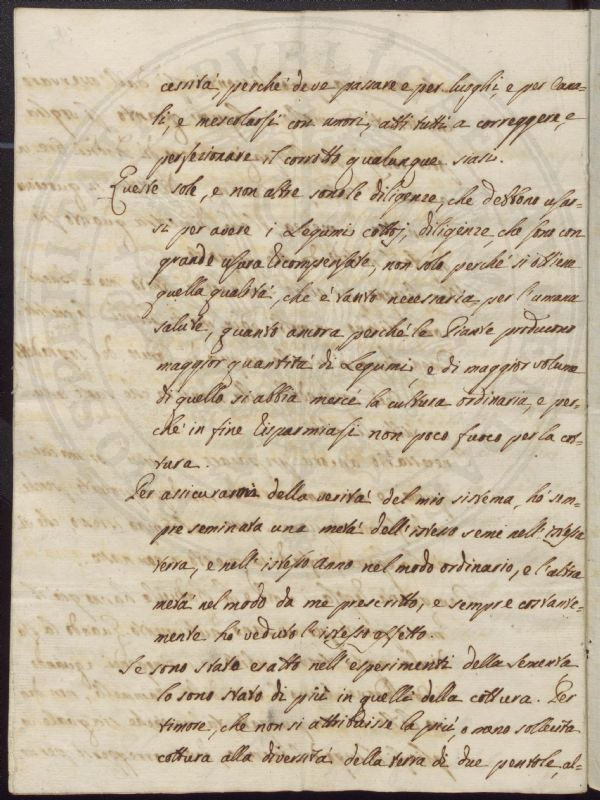 cessità, perché deve passare e per luoghi, e per Cana-
li, e mescolarsi con umori, atti tutti a correggere, e
perfezionare il corrotto qualunque siasi.
Queste sole, e non altre sono le diligenze, che debbono usar-
si per avere i Legumi cottoj, diligenze, che sono con
grande usura ricompensate, non solo perché si ottiene
quella qualità, che è tanto necessaria per l'umana
salute, quanto ancora perché le Piante producono
maggior quantità di Legumi, e di maggior volume
di quello si abbia mercè la cultura ordinaria, e per-
ché in fine risparmiasi non poco fuoco per la cot-
tura.
Per assicurarmi della verità del mio sistema, hò sem-
pre seminata una metà dell'istesso seme nell'istessa
terra, e nell'istesso anno nel modo ordinario, e l'altra
metà nel modo da me prescritto, e sempre costante-
mente hò veduto l'istesso effetto.
Se sono stato esatto nell'esperimenti della sementa
lo sono stato di più in quelli della cottura. Per
timore, che non si attribuisse la più, o meno sollecita
cottura alla diversità della terra di due pentole, al-